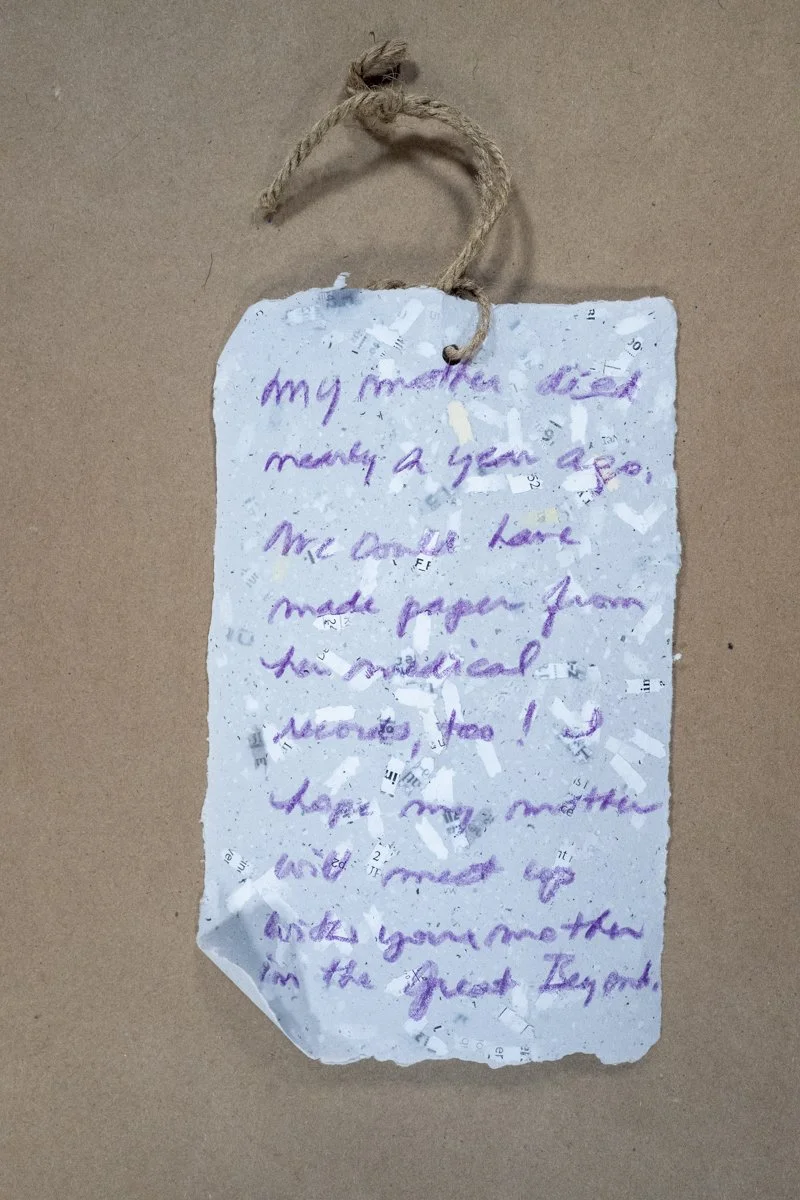 My mother died
nearly a year ago.
We could have
made paper from
her medical
records, too! I
hope my mother
will meet up
with your mother
in the Great Beyond.